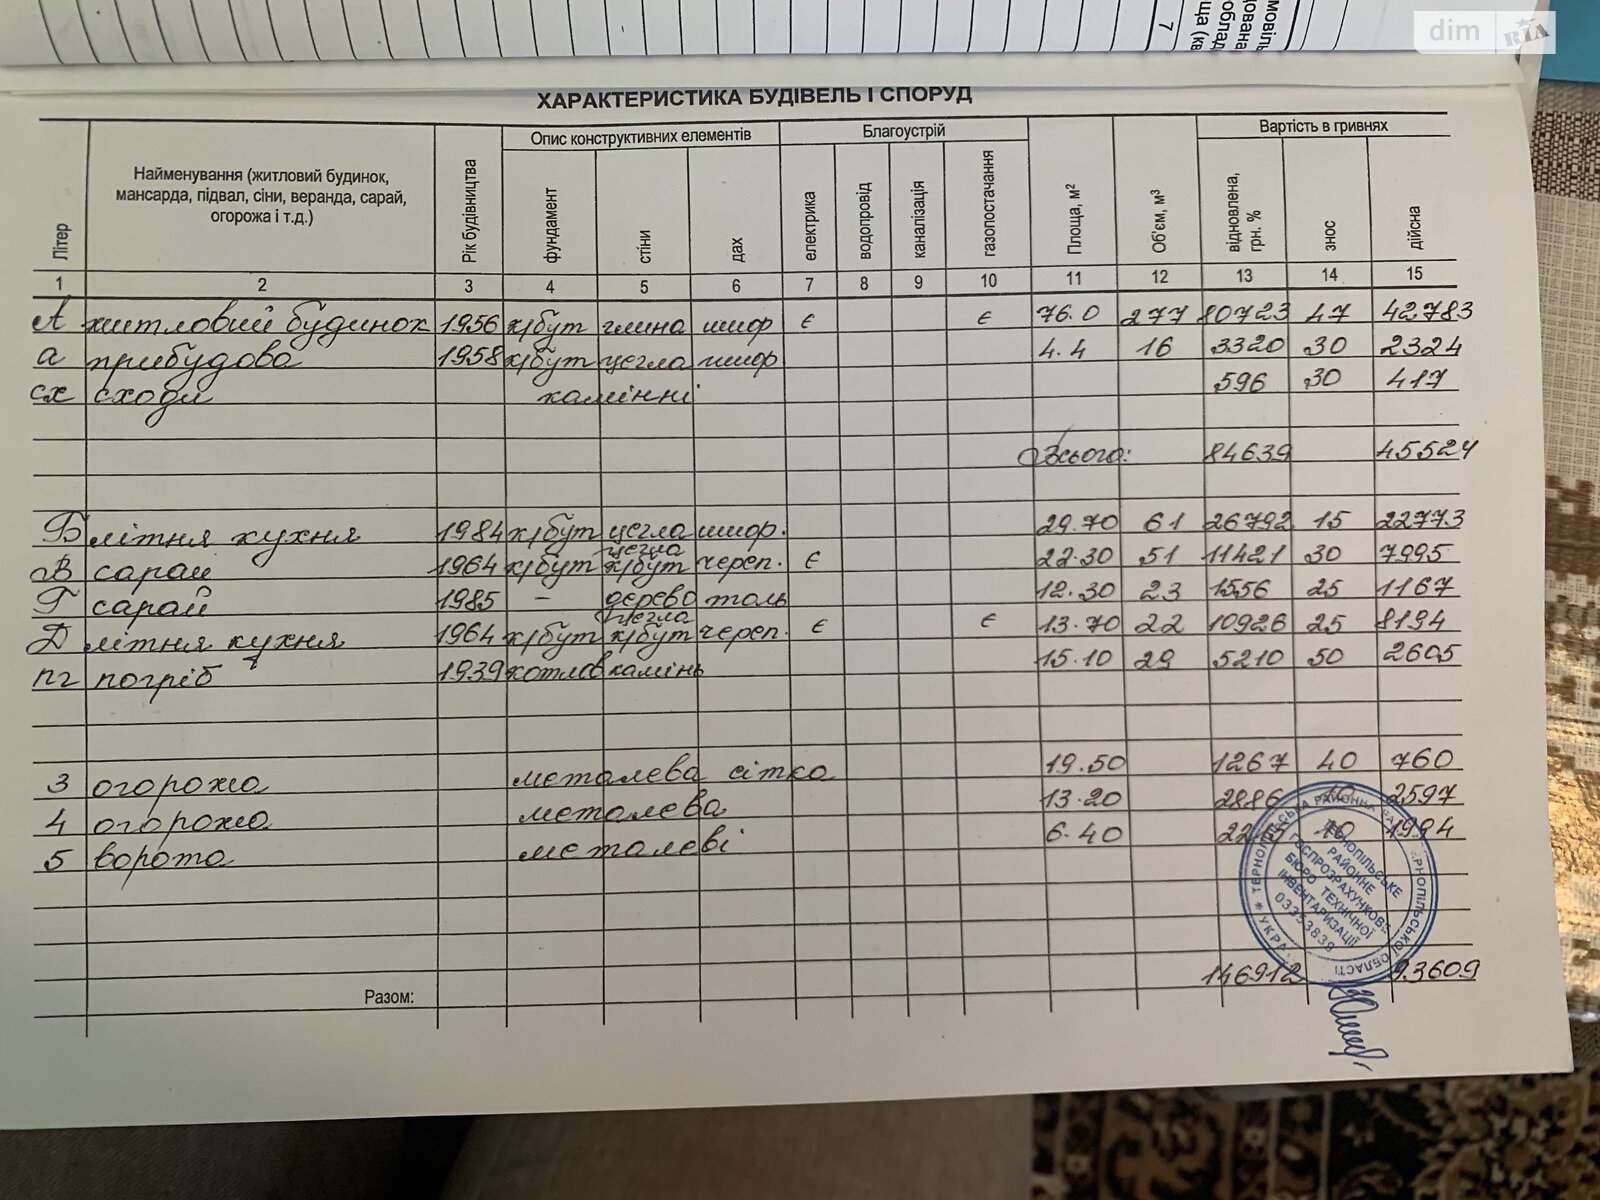 dim RIA
7
ХАРАКТЕРИСТИКА БУДІВЕЛЬ І СПОРУД
Літер
Найменування (житловий будинок, мансарда, підвал, сіни, веранда, сарай, огорожа і т.д.)
Рік будівництва
Опис конструктивних елементів
фундамент
стіни
дах
Благоустрій
електрика
водопровід
каналізація
газопостачання
Площа, м²
Об'єм, м³
Вартість в гривнях
відновлена, грн. %
знос
дійсна
1 2 3 4 5 6 7 8 9 10 11 12 13 14 15
А житловий будинок 1956 х/бут глина шифр є є 76.0 277 80723 47 42783
а прибудова 1958 х/бут цегла шифр 4.4 16 3320 30 2324
сх сходи камінні 596 30 417
Всього: 84639 45524
Б літня кухня 1984 х/бут цегла шифр. 29.70 61 26792 15 22773
В сарай 1964 х/бут цегла х/бут череп. є 22.30 51 11421 30 7995
Г сарай 1985 – дерево толь 12.30 23 1556 25 1167
Д літня кухня 1964 х/бут цегла х/бут череп. є є 13.70 22 10926 25 8194
пг погріб 1939 котлов камінь 15.10 29 5210 50 2605
3 огорожа металева сітка 19.50 1267 40 760
4 огорожа металева 13.20 2886 10 2597
5 ворота металеві 6.40 10 1994
ТЕРНОПІЛЬСЬКЕ
РАЙОННЕ
ГОСПРОЗРАХУНКОВЕ
БЮРО ТЕХНІЧНОЇ
ІНВЕНТАРИЗАЦІЇ
Разом: 146912 93609